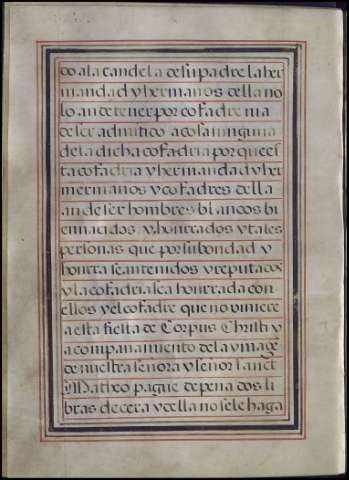 do a la candela de su padre la her
mandad y hermanos della no
lo an de tener por cofadre ni a
de ser admitido a cosa ninguna
de la dicha cofadria por que es
ta cofadria y hermandad y her
mermanos y cofadres della
an de ser hombres blancos bi
en nacidos y honrrados y tales
personas que por su bondad y
honrra sean tenidos y reputados
y la cofadria sea honrada con
ellos y el cofadre que no viniere
a esta fiesta de Corpus Christi y
acompanamiento de la ymagē
de nuestra señora y señor sanct
Matheo pague de pena dos li
bras de cera y della no se le haga